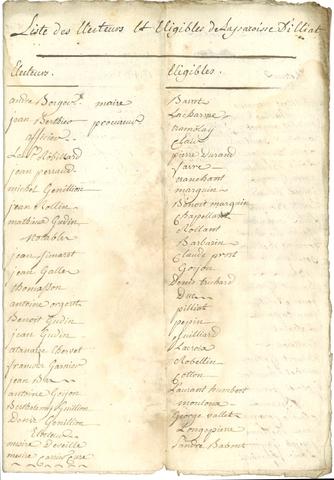 Liste des Electeurs et Eligibles de la paroisse D'illiat
Electeurs.
andré maire
jean Berthier procureur
officier
Le Sr Robillard
jean perraud
michel Genillion
jean Rollin
mathieu Gudin
Notables
jean simaret
jean Gallet
thomasson
antoine
Benoit Gudin
jean Gudin
Chervet
francois Garnier
jean Duc
antoine Goyon
Barthelemy Guillion
Denis Genillion
Electeurs
Deveille
curé
Eligibles.
Barret
Lacharme
tramblay
Claire
pierre Durand
faivre
tranchant
marquin
Benoit marquin
Chapelland
Rollant
Barbarin
Claude prost
Goyon
Denis trichard
Duc
pilliat
pepin
Guilliard
Lacroix
Robellin
Cotton
Laurant humbert
montoux
George vallet
Longepierre